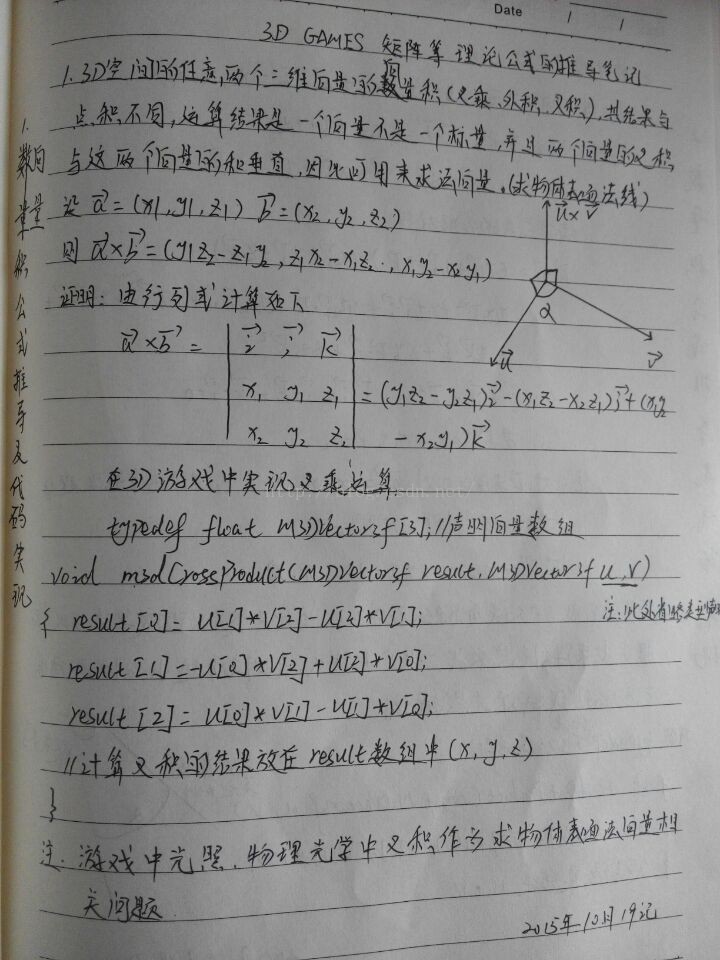 Date / /
3D GAMES 矩阵等理论公式的推导笔记
1. 3D空间的任意,两个三维向量的向量积(叉乘、外积、叉积),其结果与
点积不同,运算结果是一个向量不是一个标量,并且两个向量的叉积
与这两个向量的和垂直,因此可用来求法向量。(求物体表面法线)
设 a⃗ = (x1, y1, z1) b⃗ = (x2, y2, z2)
则 a⃗×b⃗ = (y1z2-z1y2, z1x2-x1z2, x1y2-x2y1)
证明:由行列式计算如下
a⃗×b⃗ = | i⃗ j⃗ k⃗ |
| x1 y1 z1 | = (y1z2-y2z1)i⃗-(x1z2-x2z1)j⃗+(x1y2
| x2 y2 z2 | -x2y1)k⃗
u⃗×v⃗
α
u⃗
v⃗
在3D游戏中实现叉乘运算
typedef float M3DVector3f[3]; //声明向量数组
void m3dCrossProduct(M3DVector3f result, M3DVector3f u, v)
注:此处省略类型声明
{ result[0] = u[1]*v[2]-u[2]*v[1];
result[1] = -u[0]*v[2]+u[2]*v[0];
result[2] = u[0]*v[1]-u[1]*v[0];
//计算叉积的结果放在result数组中(x, y, z)
}
注.游戏中光照、物理光学中叉积作为求物体表面法向量相
关问题.
2015年10月19记
1.向量积公式推导及代码实现